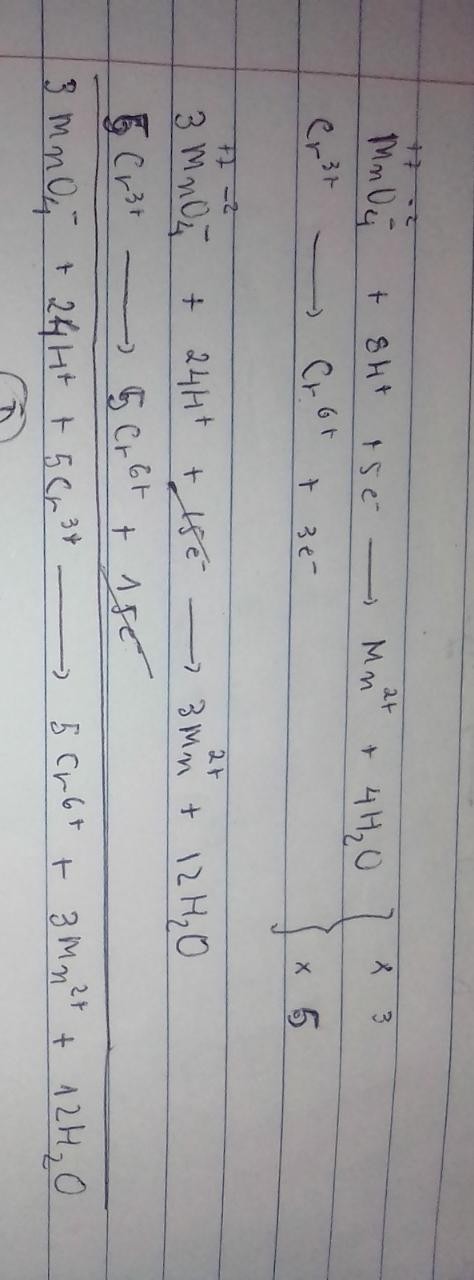 +7 -2
MnO₄⁻ + 8H⁺ + 5e⁻ ⟶ Mn²⁺ + 4H₂O } x 3
Cr³⁺ ⟶ Cr⁶⁺ + 3e⁻ } x 5
+7 -2
3 MnO₄⁻ + 24H⁺ + 15e⁻ ⟶ 3Mn²⁺ + 12H₂O
5 Cr³⁺ ⟶ 5Cr⁶⁺ + 15e⁻
3 MnO₄⁻ + 24H⁺ + 5Cr³⁺ ⟶ 5Cr⁶⁺ + 3Mn²⁺ + 12H₂O